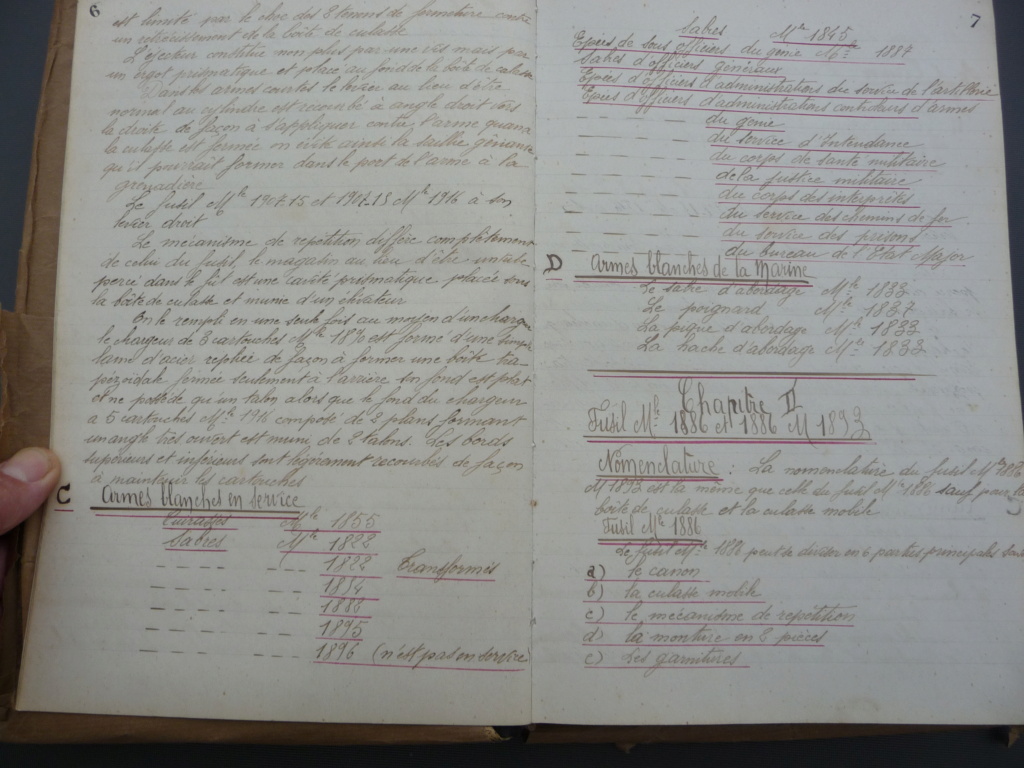 6
est limité par le choc des 2 tenons de fermeture contre
un rétrécissement de la boîte de culasse
L'éjecteur constitue non plus par une vis mais par
un ergot prismatique et placé au fond de la boîte de culasse
Dans les armes courtes le levier au lieu d'être
normal au cylindre est recourbé à angle droit vers
la droite de façon à l'appliquer contre l'arme quand
la culasse est fermée on évite ainsi la saillie gênante
qu'il pourrait former dans le port de l'arme à la
grenadière
Le fusil Mle 1907.15 et 1907-15 Mle 1916 à son
levier droit
Le mécanisme de répétition diffère complètement
de celui du fusil, le magasin au lieu d'être
percé dans le fût est une cavité prismatique placée sous
la boîte de culasse et munie d'un élévateur
On le remplit en une seule fois au moyen d'un chargeur
le chargeur de 3 cartouches Mle 1890 est formé d'une simple
lame d'acier repliée de façon à former une boîte tra-
pézoïdale fermée seulement à l'arrière son fond est plat
et ne possède qu'un talon alors que le fond du chargeur
a 5 cartouches Mle 1916 composé de 2 plans formant
un angle très ouvert est muni de 2 talons. Les bords
supérieurs et inférieurs sont légèrement recourbés de façon
à maintenir les cartouches
C Armes blanches en service
Cuirasses Mle 1855
Sabres Mle 1822
— — — — — — 1822 Transformés
— — — — — — 1854
— — — — — — 1888
— — — — — — 1895
— — — — — — 1896 (n'est pas en service)
7
Sabres Mle 1845
Epées de sous officiers du génie Mle 1887
Sabres d'officiers généraux
Epées d'officiers d'administrations du service de l'artillerie
Epées d'officiers d'administrations contrôleurs d'armes
— — — — du génie
— — — — du service d'Intendance
— — — — du corps de santé militaire
— — — — de la justice militaire
— — — — du corps des interprètes
— — — — du service des chemins de fer
— — — — du service des prisons
— — — — du bureau de l'Etat Major
D Armes blanches de la Marine
Le sabre d'abordage Mle 1833
Le poignard Mle 1837
La pique d'abordage Mle 1833
La hache d'abordage Mle 1833
Chapitre II
Fusil Mle 1886 et 1886 M 1893
Nomenclature : La nomenclature du fusil Mle 1886
M 1893 est la même que celle du fusil Mle 1886 sauf pour la
boîte de culasse et la culasse mobile
Fusil Mle 1886
Le fusil Mle 1886 peut se diviser en 6 parties principales
a) le canon
b) la culasse mobile
c) le mécanisme de répétition
d) la monture en 2 pièces
e) Les garnitures